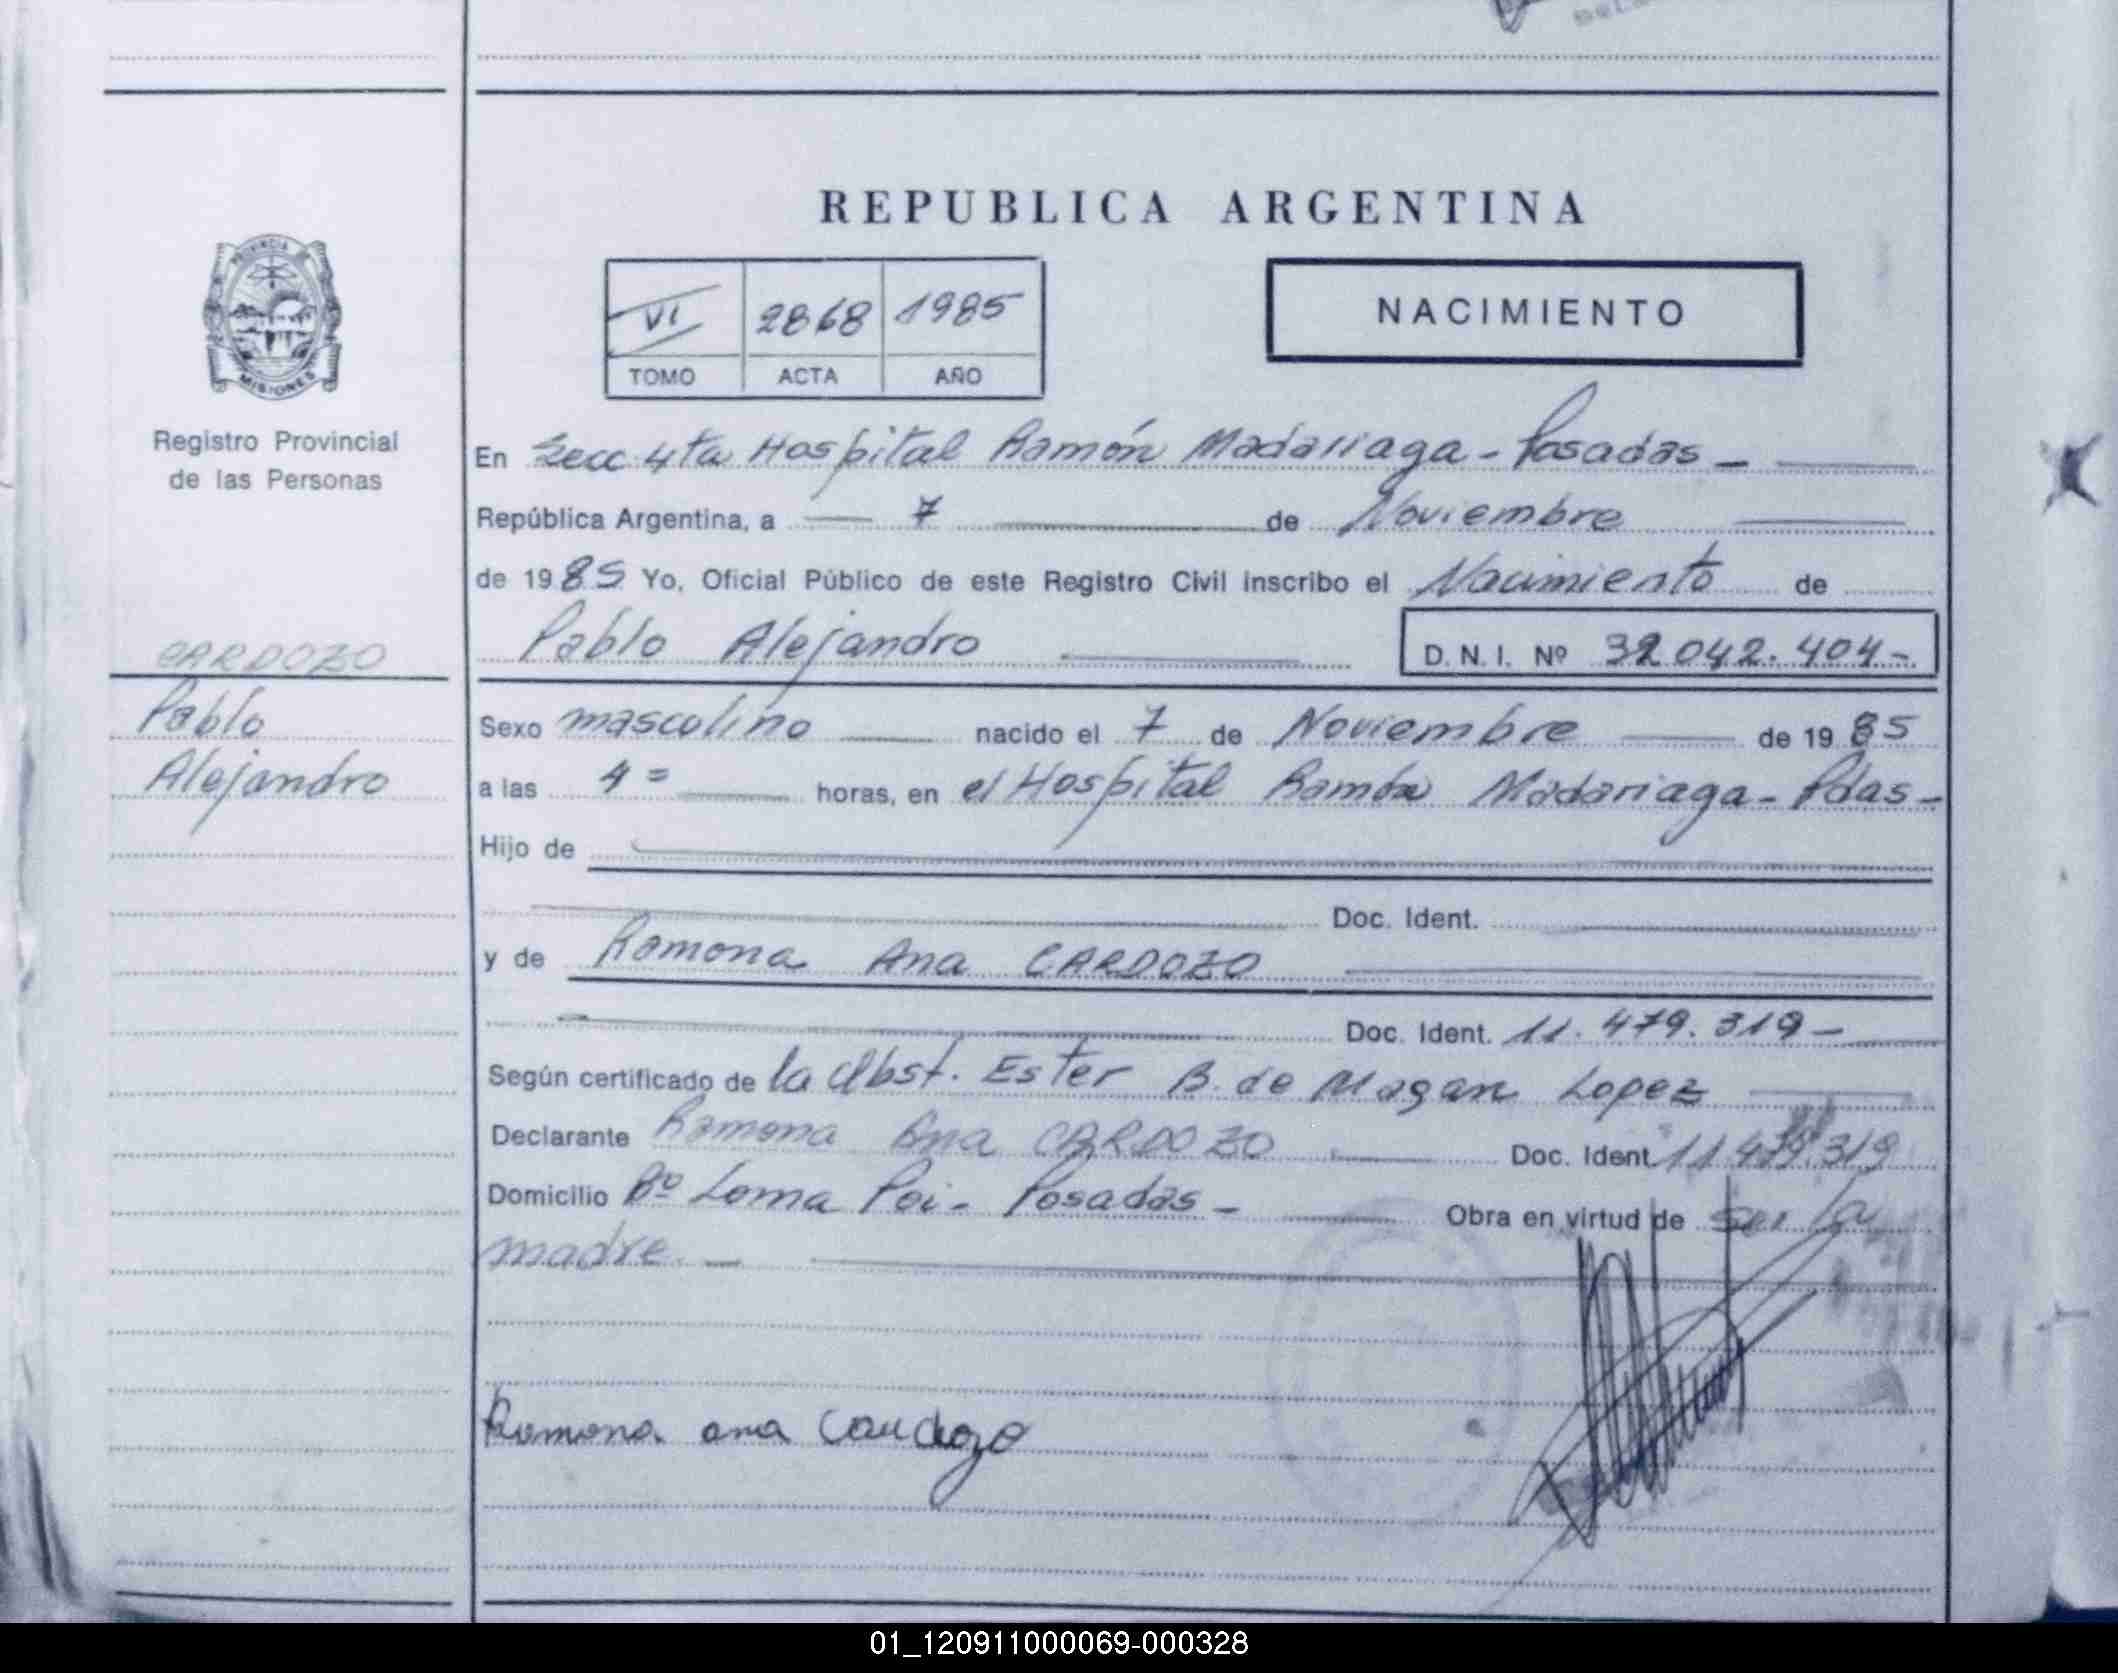 REPUBLICA ARGENTINA
VI 2868 1985
TOMO ACTA AÑO
NACIMIENTO
PROVINCIA DE
MISIONES
Registro Provincial
de las Personas
CARDOZO
Pablo
Alejandro
En Secc 4ta Hospital Ramón Madariaga - Posadas -
República Argentina, a 7 de Noviembre
de 1985 Yo, Oficial Público de este Registro Civil inscribo el Nacimiento de
Pablo Alejandro D. N. I. Nº 32.042.404-
Sexo masculino nacido el 7 de Noviembre de 1985
a las 4 = horas, en el Hospital Ramón Madariaga - Pdas -
Hijo de
Doc. Ident.
y de Ramona Ana CARDOZO
Doc. Ident. 11.479.319 -
Según certificado de la Obst. Ester B. de Magan Lopez
Declarante Ramona Ana CARDOZO Doc. Ident. 11.479.319
Domicilio Bº Loma Poi - Posadas - Obra en virtud de ser la
madre. -
Ramona ana Cardozo
01_120911000069-000328